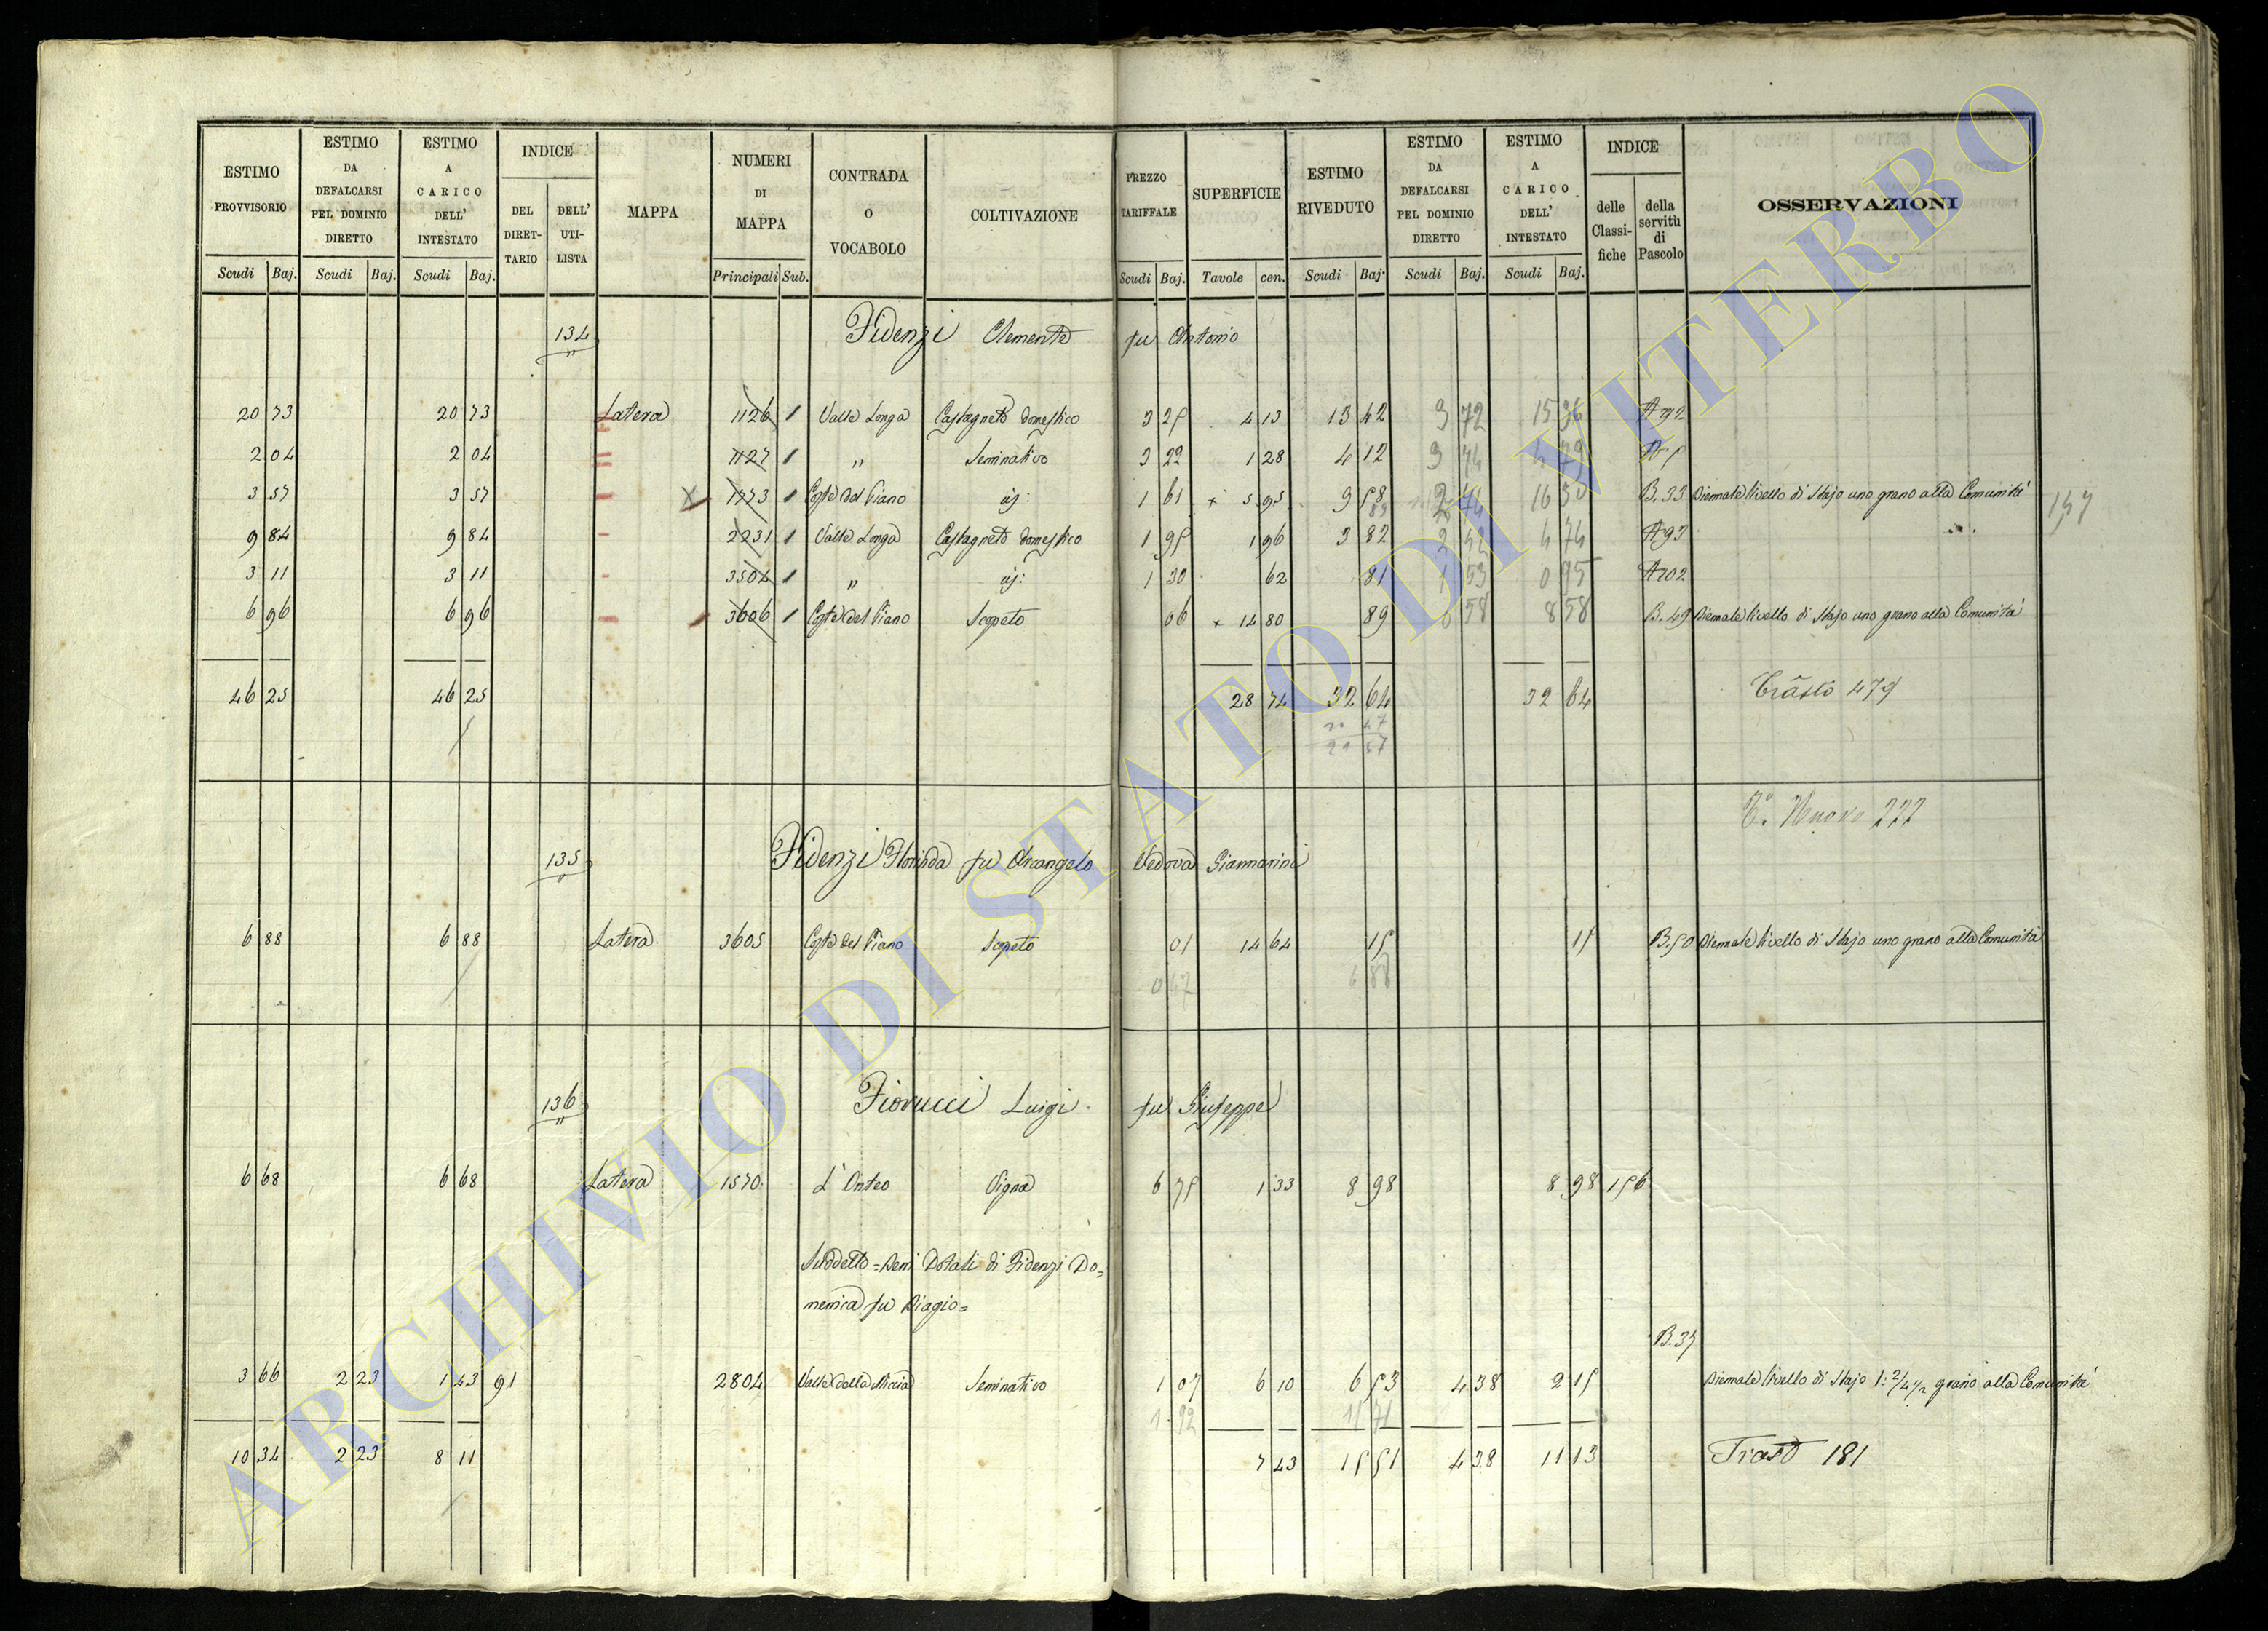 ESTIMO PROVVISORIO | ESTIMO DA DEFALCARSI PEL DOMINIO DIRETTO | ESTIMO A CARICO DELL' INTESTATO | INDICE DEL DIRETTARIO | DELL' UTILISTA | MAPPA | NUMERI DI MAPPA | CONTRADA O VOCABOLO | COLTIVAZIONE | PREZZO TARIFFALE | SUPERFICIE | ESTIMO RIVEDUTO | ESTIMO DA DEFALCARSI PEL DOMINIO DIRETTO | ESTIMO A CARICO DELL' INTESTATO | INDICE delle Classifiche | della servitù di Pascolo | OSSERVAZIONI
Scudi Baj. | Scudi Baj. | Scudi Baj. | Principali Sub. | Scudi Baj. | Tavole cen. | Scudi Baj. | Scudi Baj. | Scudi Baj.
134 Fidenzi Clemente fu Antonio
20 73 | 20 73 | Latera | 1126 1 | Valle Longa | Castagneto domestico | 3 25 | 4 13 | 13 42 | 3 72 | 15 36 | A 92
2 04 | 2 04 | 1127 1 | " | Seminativo | 3 22 | 1 28 | 4 12 | 3 74
3 57 | 3 57 | 1773 1 | Coste del Piano | id: | 1 61 | + 5 95 | 9 58 | 2 74 | B. 33 | Biennale livello di Stajo uno grano alla Comunità
9 84 | 9 84 | 2231 1 | Valle Longa | Castagneto domestico | 1 95 | 1 96 | 3 82 | 2 42 | 4 74 | A 93
3 11 | 3 11 | 3504 1 | " | id: | 1 30 | 62 | 81 | 1 53 | 0 95 | A 102
6 96 | 6 96 | 3606 1 | Coste del Piano | Scopeto | 06 | + 14 80 | 89 | 58 | 8 58 | B. 49 | Biennale livello di Stajo uno grano alla Comunità
46 25 | 46 25 | 28 74 | 32 64 | 32 64 | Trasto 479
157
V. Nuovo 222
135 Fidenzi Florinda fu Arcangelo Vedova Giannarini
6 88 | 6 88 | Latera | 3605 | Coste del Piano | Scopeto | 01 | 14 64 | 15 | 15 | B. 50 | Biennale livello di Stajo uno grano alla Comunità
0 47 | 6 88
136 Fiorucci Luigi fu Giuseppe
6 68 | 6 68 | Latera | 1570 | L' Onteo | Vigna | 6 75 | 1 33 | 8 98 | 8 98 | 156
Suddetto = Beni Dotali di Fidenzi Do=
menica fu Biagio =
B. 35
3 66 | 2 23 | 1 43 | 91 | 2804 | Valle della Miccia | Seminativo | 1 07 | 6 10 | 6 53 | 4 38 | 2 15 | Biennale livello di Stajo 1: 2/4 1/2 grano alla Comunità
1 92 | 11 71
10 34 | 2 23 | 8 11 | 7 43 | 15 51 | 4 38 | 11 13 | Trasto 181
ARCHIVIO DI STATO DI VITERBO